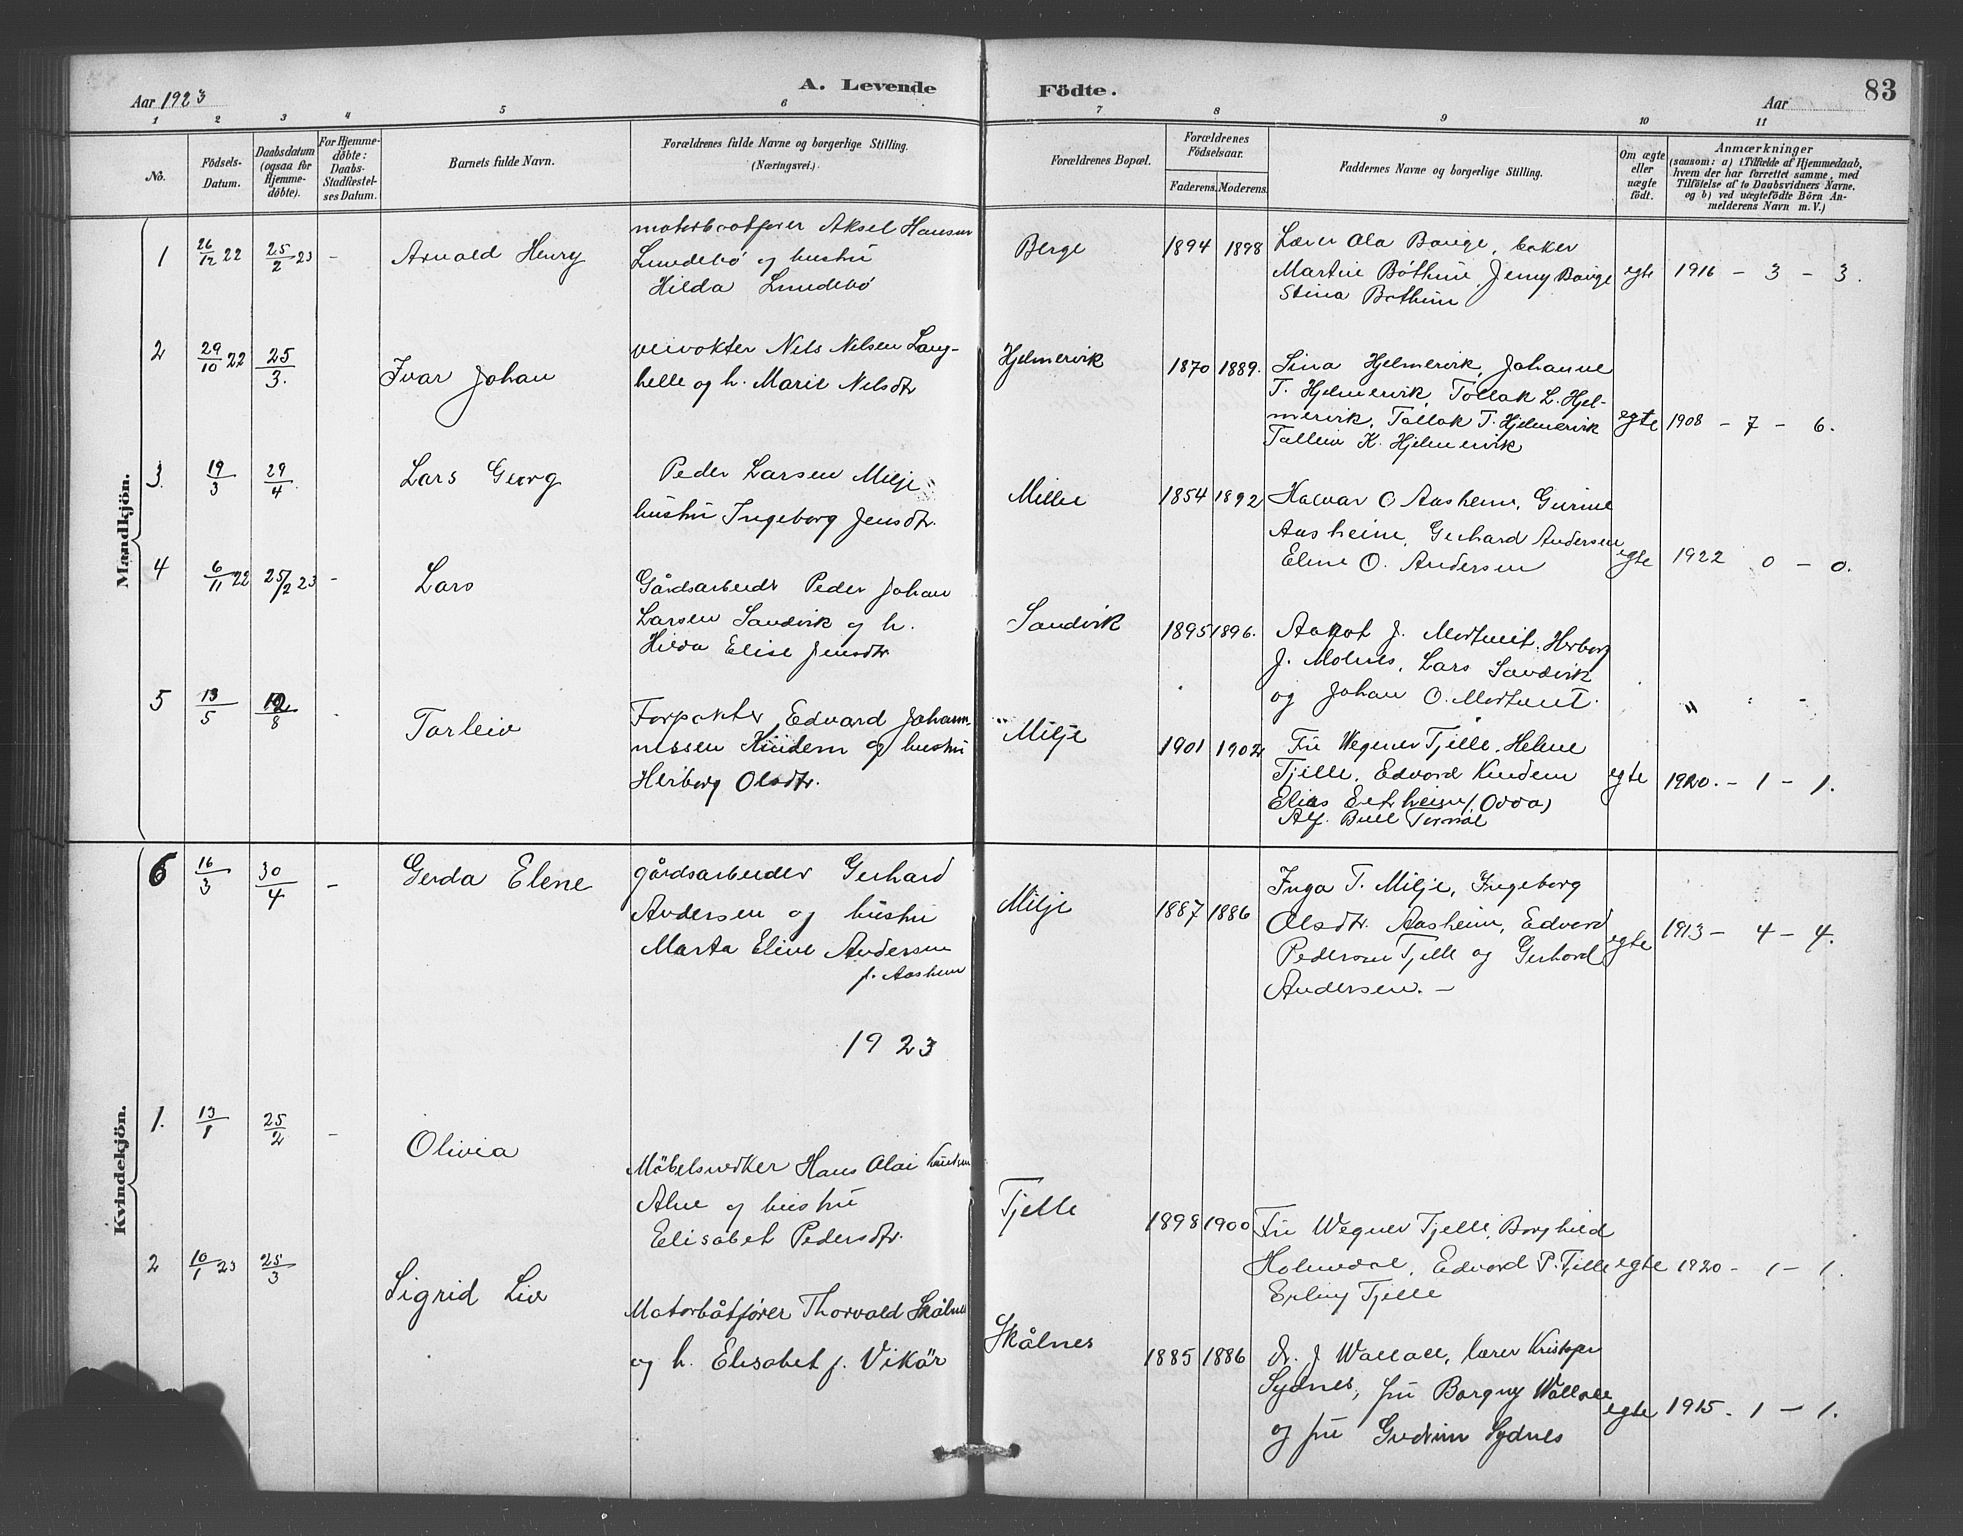 Aar 1923
A. Levende
Födte.
Aar
83
1 2 3 4 5 6 7 8 9 10 11
No.
Födsels-
Datum.
Daabsdatum
(ogsaa for
Hjemme-
döbte).
For Hjemme-
döbte:
Daabs-
Stadfæstel-
ses Datum.
Barnets fulde Navn.
Forældrenes fulde Navne og borgerlige Stilling.
(Næringsvei.)
Forældrenes Bopæl.
Forældrenes
Födselsaar.
Faderens. Moderens.
Faddernes Navne og borgerlige Stilling.
Om ægte
eller
uægte
födt.
Anmærkninger
(saasom: a) i Tilfælde af Hjemmedaab,
hvem der har forrettet samme, med
Tilföielse af to Daabsvidners Navne.
og b) ved uægtefödte Börn An-
melderens Navn m. V.)
Mandkjön.
1 26/12 22 25/2 23 - Arnold Henry
motorbaatfører Aksel Hansen
Lundebö og hustru
Hilda Lundebö
Berge 1894 1898
Lærer Ola Bauge, baker
Martin Böthun, Jenny Bauge
Stina Bothun
egte 1916 - 3 - 3.
2 29/10 22 25/3. Ivar Johan
veivokter Nils Nilsen Lang-
helle og h. Marie Nilsdtr
Hjelmervik 1870 1889.
Sina Hjelmervik, Johanne
T. Hjelmervik, Tollak L. Hjel-
mervik, Tollak T. Hjelmervik
K. Hjelmervik
egte 1908 - 7 - 6.
3. 19/3 29/4 Lars Georg
Peder Larsen Milje
hustru Ingeborg Jensdtr.
Milje 1854 1892
Halvar O Aasheim, Gurine
Aasheim, Gerhard Andersen
Eline O. Andersen
egte 1922 0 - 0.
4 6/11 22 25/2 23 - Lars
Gårdsarbeidr Peder Johan
Larsen Sandvik og h.
Hilda Elise Jensdtr
Sandvik 1895 1896.
J. Herborg
J. Molnes, Lars Sandvik
og Johan O.
" " -
5 13/5 8 - Torleiv
Forpakter Edvard Johann-
nessen Kindem og hustru
Herborg Olsdtr.
Milje 1901 1902
Fru Wegner Tjelle, Helene
Tjelle, Edvard Kindem
Elias (Odda)
Alf. Bull
egte 1920. - 1 - 1.
Kvindekjön.
6 16/3 30/4 - Gerda Elene
gårdsarbeider Gerhard
Andersen og hustru
Marta Eline Andersen
f. Aasheim
Milje 1887 1886
Inga T. Milje, Ingeborg
Olsdtr. Aasheim, Edvard
Pedersen Tjelle og Gerhard
Andersen. -
egte 1913 - 4 - 4.
1923
1. 13/1 25/2 - Olivia
Möbelsnedker Hans Olai Knutsen
Alne og hustru
Elisabet Pedersdtr.
Tjelle 1898 1900
Fru Wegner Tjelle, Borghild
Holmedal, Edvard P. Tjelle
Erling Tjelle
egte 1920 - 1 - 1.
2 10/1 23 25/3 Sigrid Liv
Motorbåtfører Thorvald Skålnes
og h. Elisabet f. Vikör
Skålnes 1885 1886
dr. J Wallace, lærer Kristofer
Sydnes, fru Borgny Wallace
og fru Gudrun Sydnes
egte 1915. - 1 - 1.